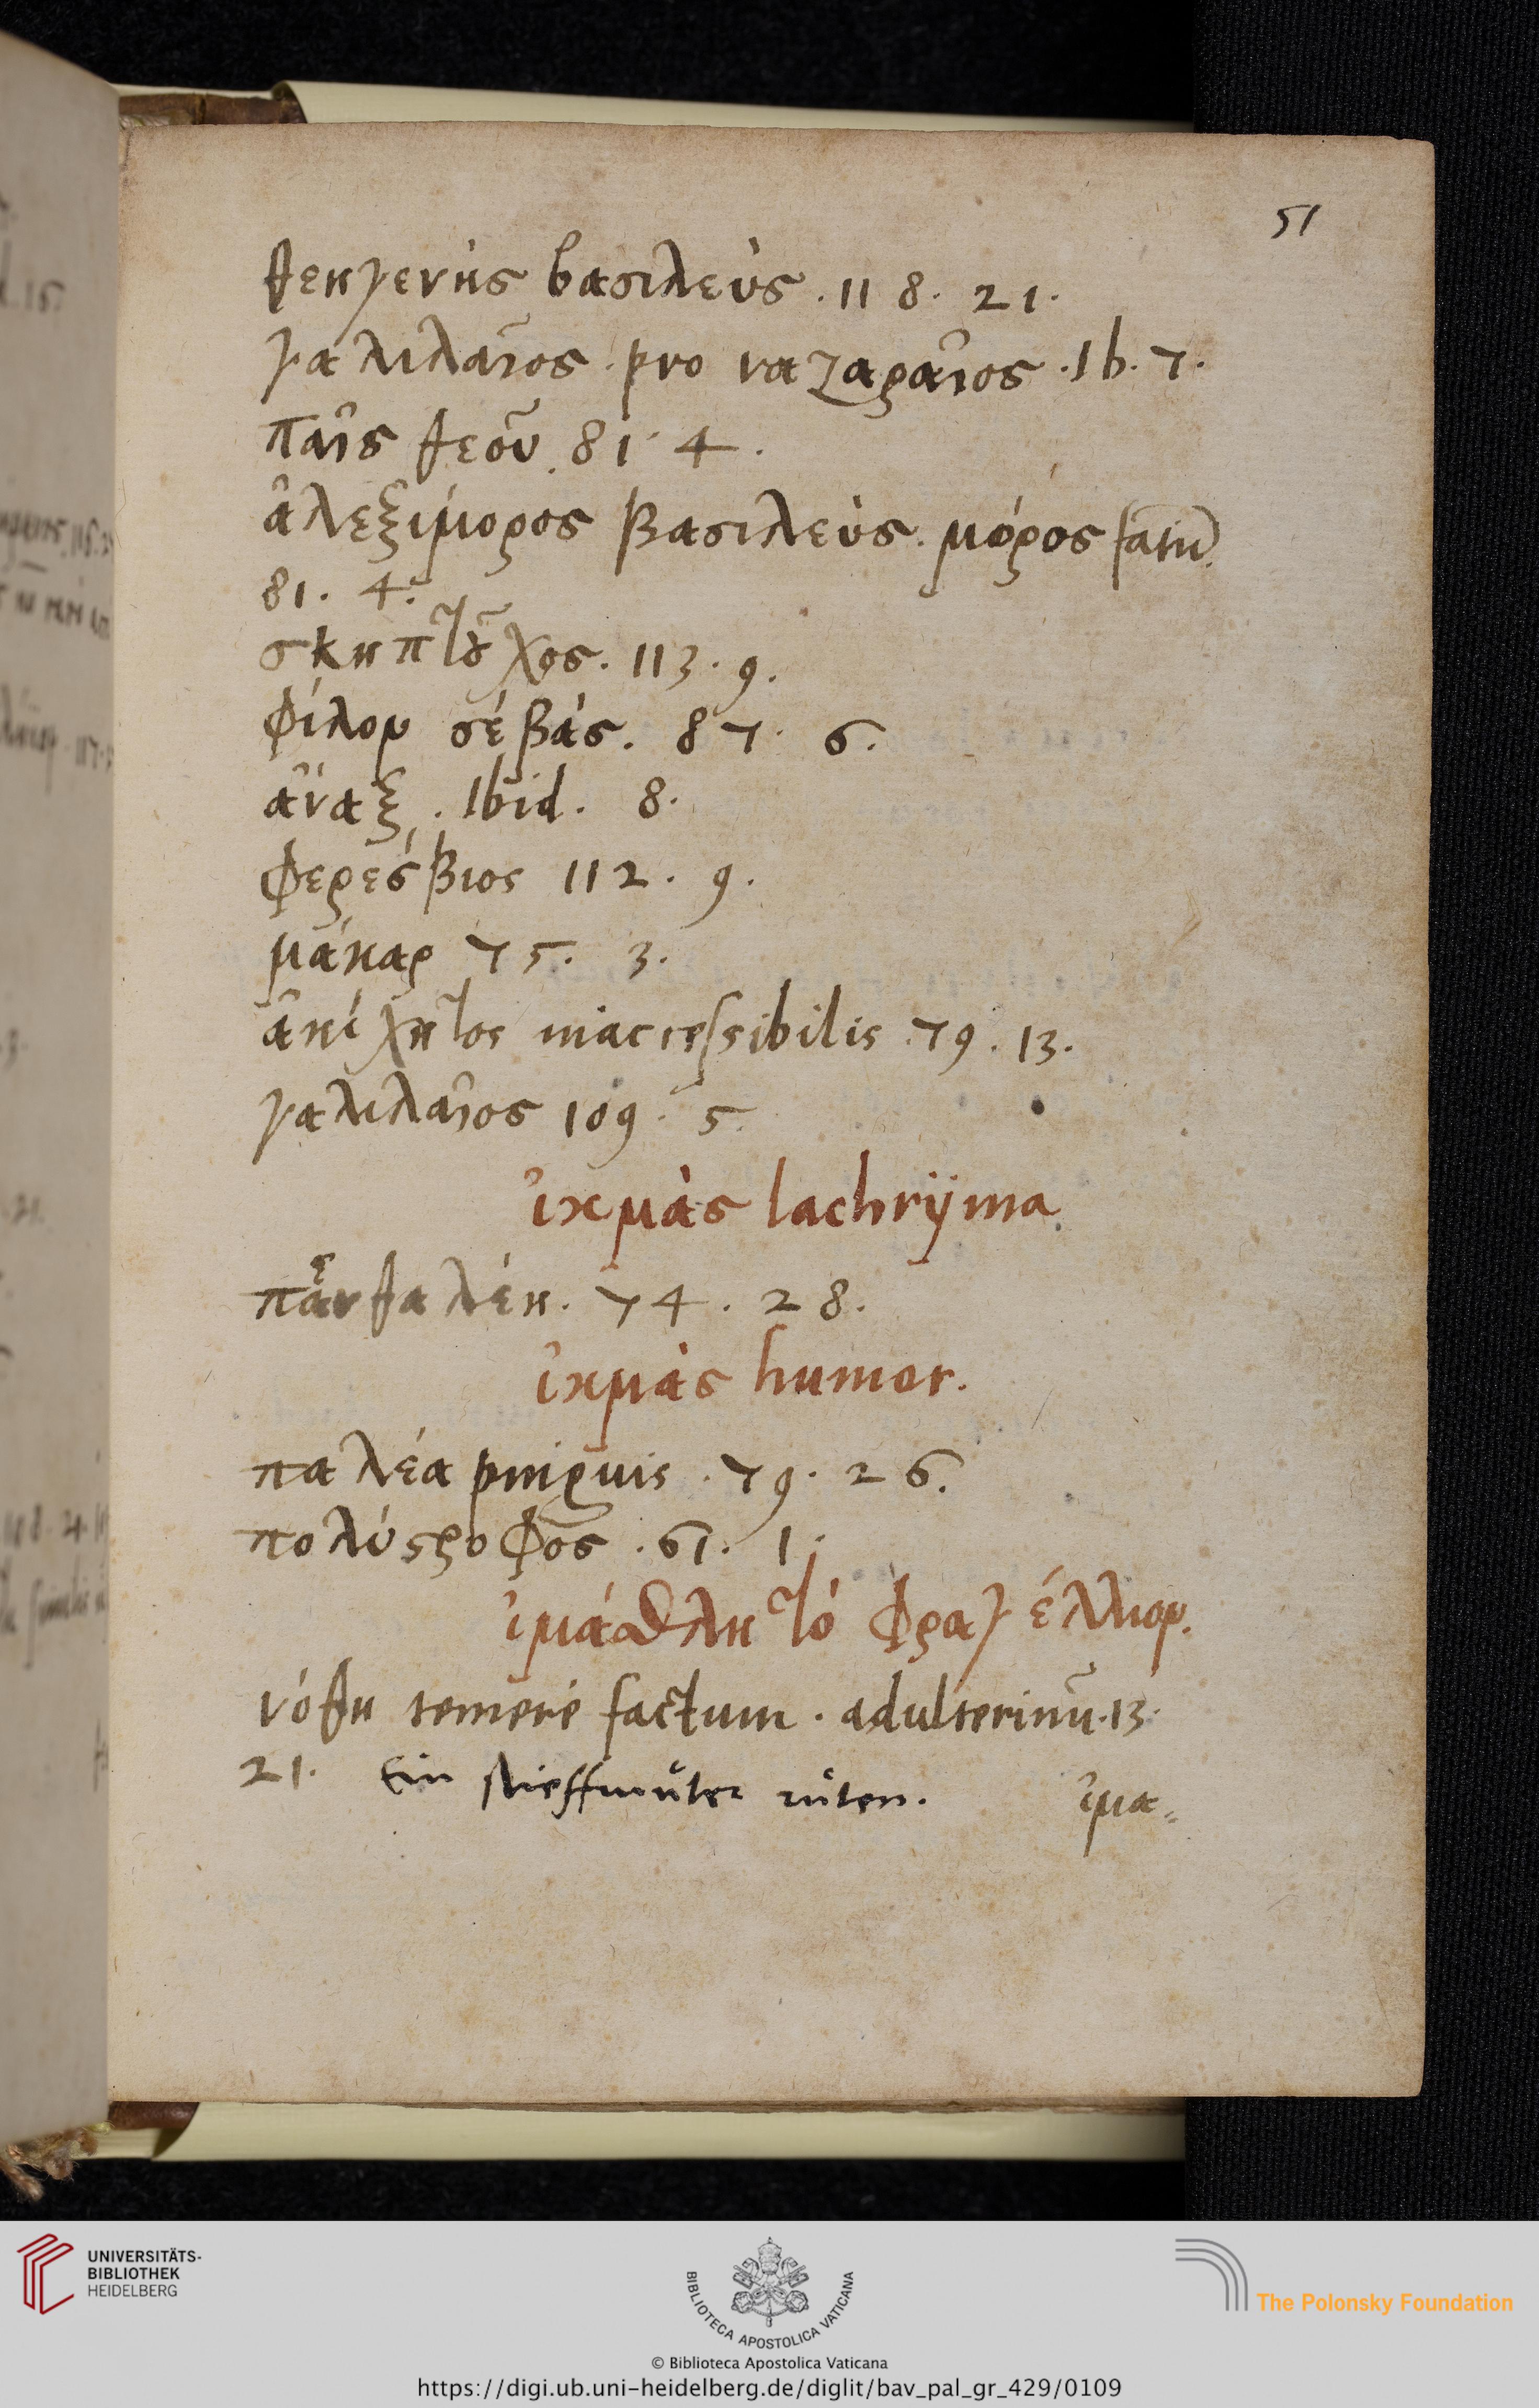 51
θεηγενὴς βασιλεὺς . 118. 21.
γαλιλαῖος . pro ναζαραῖος . Ib. 7.
παῖς θεοῦ. 81. 4.
ἀλεξίμορος βασιλεὺς. μόρος fatū.
81. 4.
σκηπτοῦχος. 113. 9.
φίλον σέβας. 87. 6.
ἄναξ . Ibid. 8.
φερέσβιος 112. 9.
μάκαρ 75. 3.
ἀκίχητος inaccessibilis . 79. 13.
γαλιλαῖος 109. 5.
ἰκμὰς lachrÿma
πανθαλέη. 74. 28.
ἰκμὰς humor.
παλέα pinguis . 79. 26.
πολύστροφος . 61. 1.
ἰμάσθλη τό φραγέλλιον.
νόθη temerè factum . adulterinū. 13.
21. Ein stieffmůter růten. ἰμα=
UNIVERSITÄTS-
BIBLIOTHEK
HEIDELBERG
BIBLIOTECA APOSTOLICA VATICANA
The Polonsky Foundation
© Biblioteca Apostolica Vaticana
https://digi.ub.uni-heidelberg.de/diglit/bav_pal_gr_429/0109